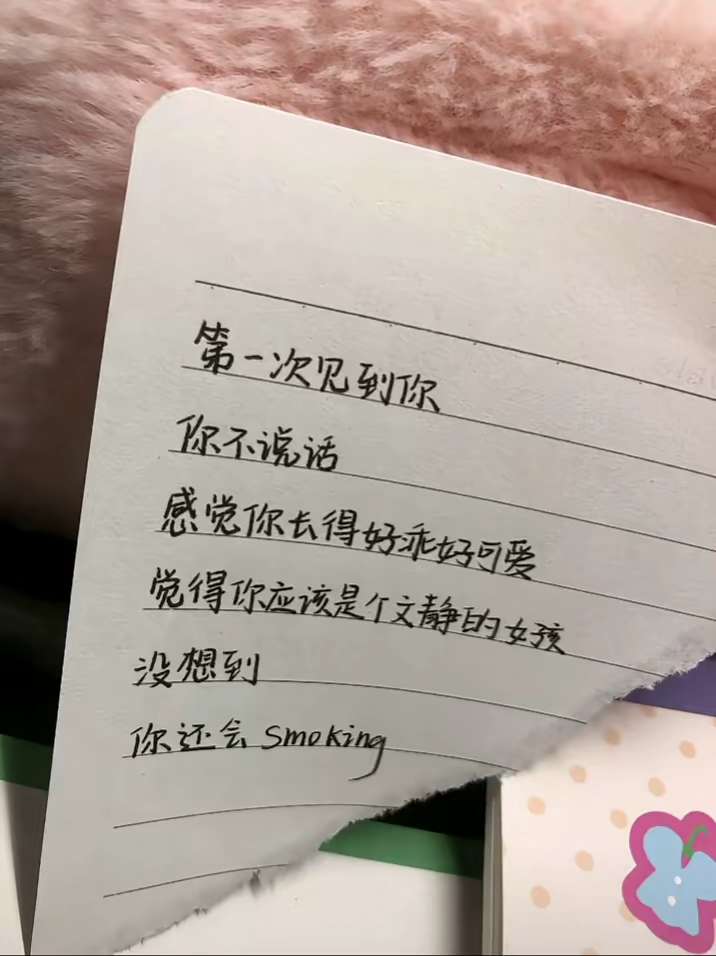 第一次见到你
你不说话
感觉你长得好乖好可爱
觉得你应该是个文静的女孩
没想到
你还会 Smoking